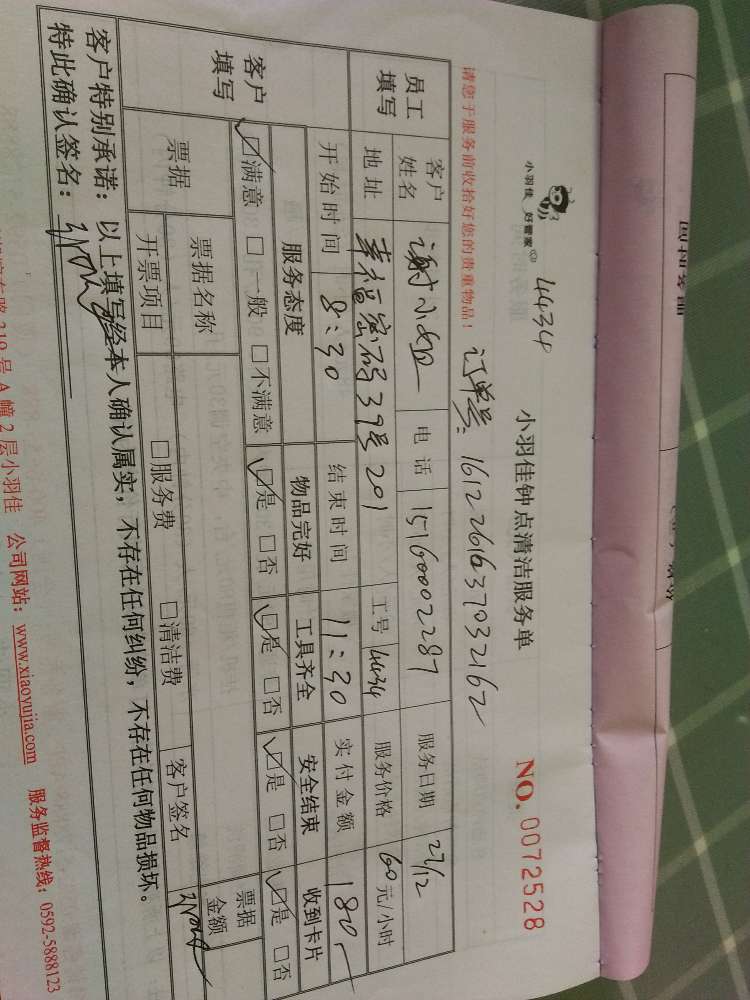 小羽佳 好管家
4434
小羽佳钟点清洁服务单
NO. 0072528
请您于服务前收拾好您的贵重物品！
订单号：1612261637032162
员工填写 客户姓名 谢小姐 电话 15160002287 服务日期 27/12
地址 幸福密码39号201 工号 4434 服务价格 60元/小时
开始时间 8:30 结束时间 11:30 实付金额 180
客户填写 服务态度 物品完好 工具齐全 安全结束 收到卡片
☑满意 □一般 □不满意 ☑是 □否 ☑是 □否 ☑是 □否 ☑是 □否
票据 票据名称 票据金额
开票项目 □服务费 □清洁费 客户签名
客户特别承诺：以上填写经本人确认属实，不存在任何纠纷，不存在任何物品损坏。
特此确认签名：
319号A幢2层小羽佳 公司网站：www.xiaoyujia.com 服务监督热线：0592-5888123